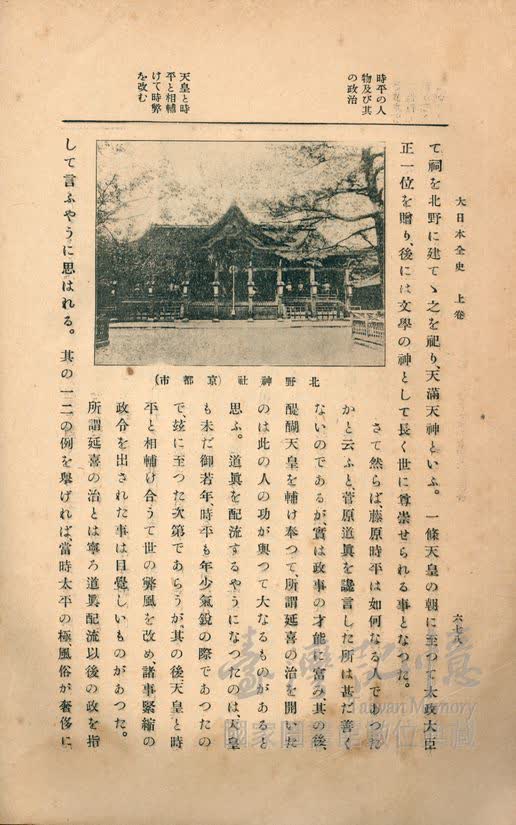 大日本全史 上卷
六七八
時平の人
物及び其
の政治
天皇と時
平と相輔
けて時弊
を改む
て祠を北野に建てゝ之を祀り、天滿天神といふ。 一條天皇の朝に至つて太政大臣
正一位を贈り、後には文學の神として長く世に尊崇せられる事となつた。
北野神社(京都市)
さて然らば、藤原時平は如何なる人であつた
かと云ふと、菅原道眞を讒言した所は甚だ善く
ないのであるが、實は政事の才能に富み、其の後、
醍醐天皇を輔け奉つて、所謂延喜の治を開いた
のは此の人の功が與つて大なるものがあると
思ふ。 道眞を配流するやうになつたのは天皇
も未だ御若年、時平も年少氣銳の際であつたの
で、玆に至つた次第であらうが、其の後天皇と時
平と相輔け合うて世の弊風を改め、諸事緊縮の
政令を出された事は目覺しいものがあつた。
所謂延喜の治とは寧ろ道眞配流以後の政を指
して言ふやうに思はれる。 其の一二の例を擧げれば、當時太平の極、風俗が奢侈に
臺灣記憶
Taiwan Memory
國家圖書館數位典藏